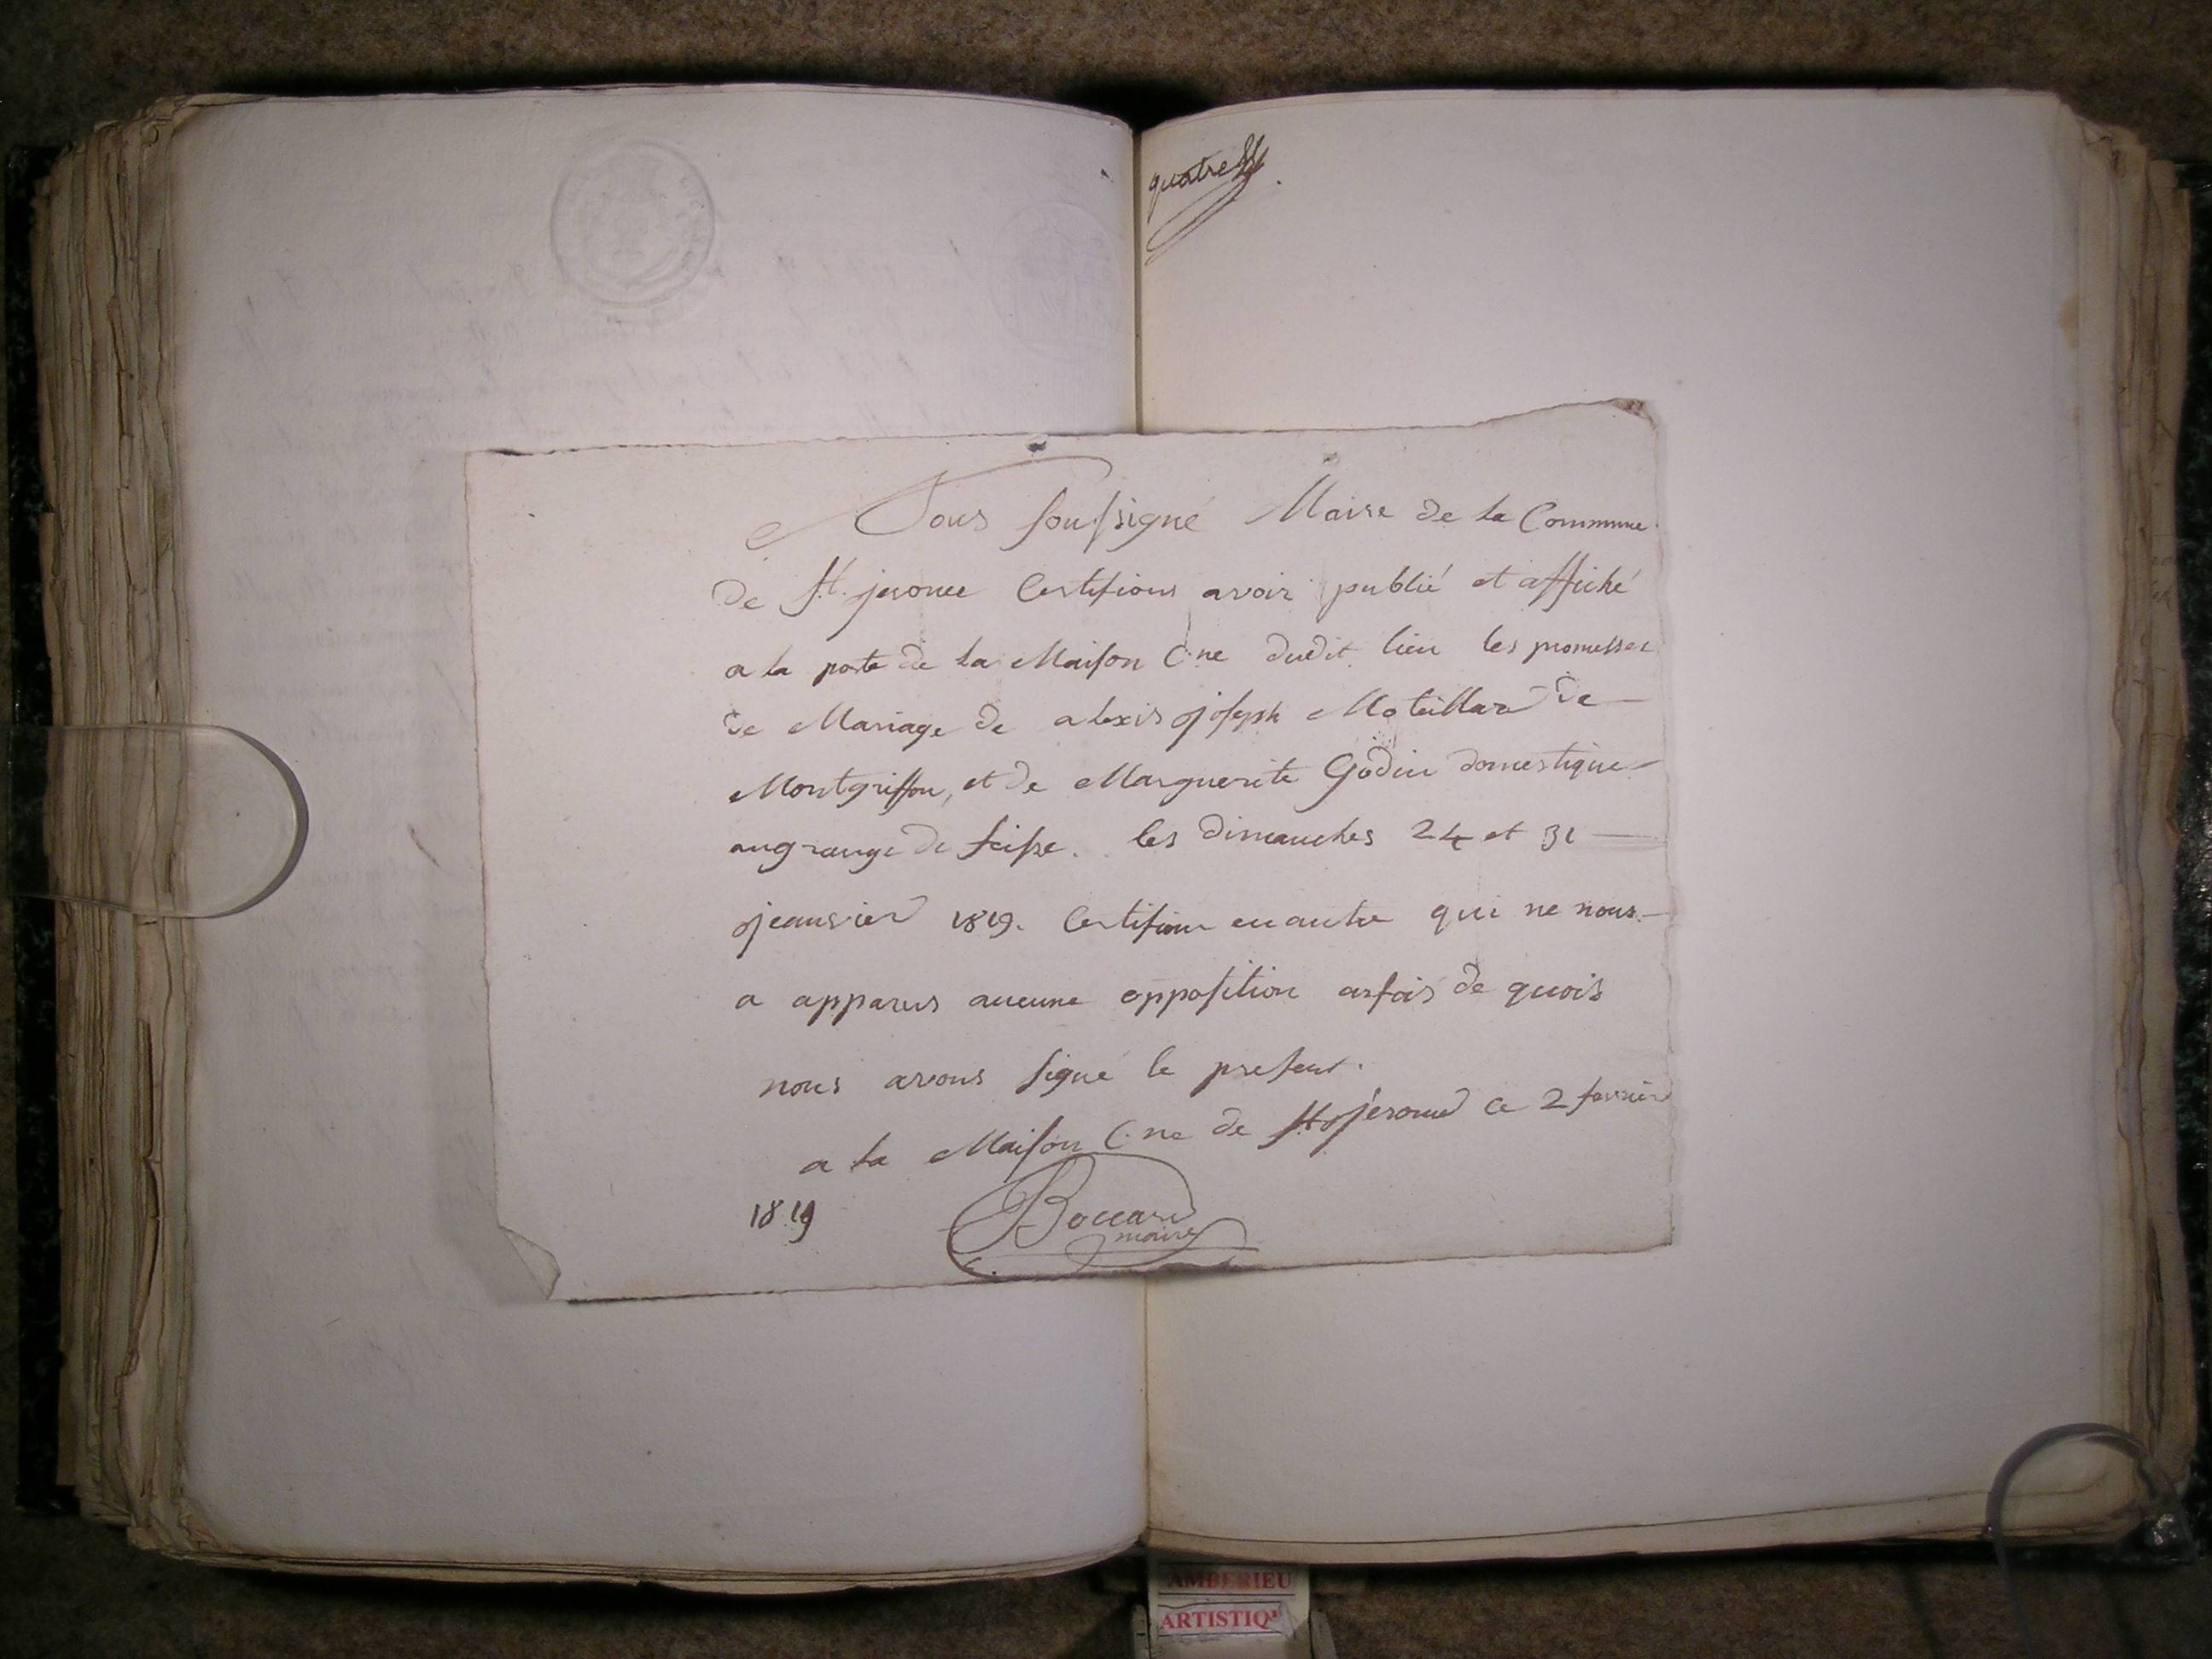 quatre
Nous soussigné Maire de la Commune
de St. jerome Certifions avoir publié et affiché
a la porte de la Maison C.ne dudit lieu les promesses
de Mariage de alexis joseph Moteillard de
Montgriffon, et de Marguerite Godin domestique
au grange de feisse. les dimanches 24 et 31
jeanvier 1819. Certifions en autre qui ne nous
a apparus aucune opposition anfois de quois
nous avons signé le present.
a la Maison C.ne de St jerome ce 2 fevrier
1819
Boccard
maire
AMBERIEU
ARTISTIQ